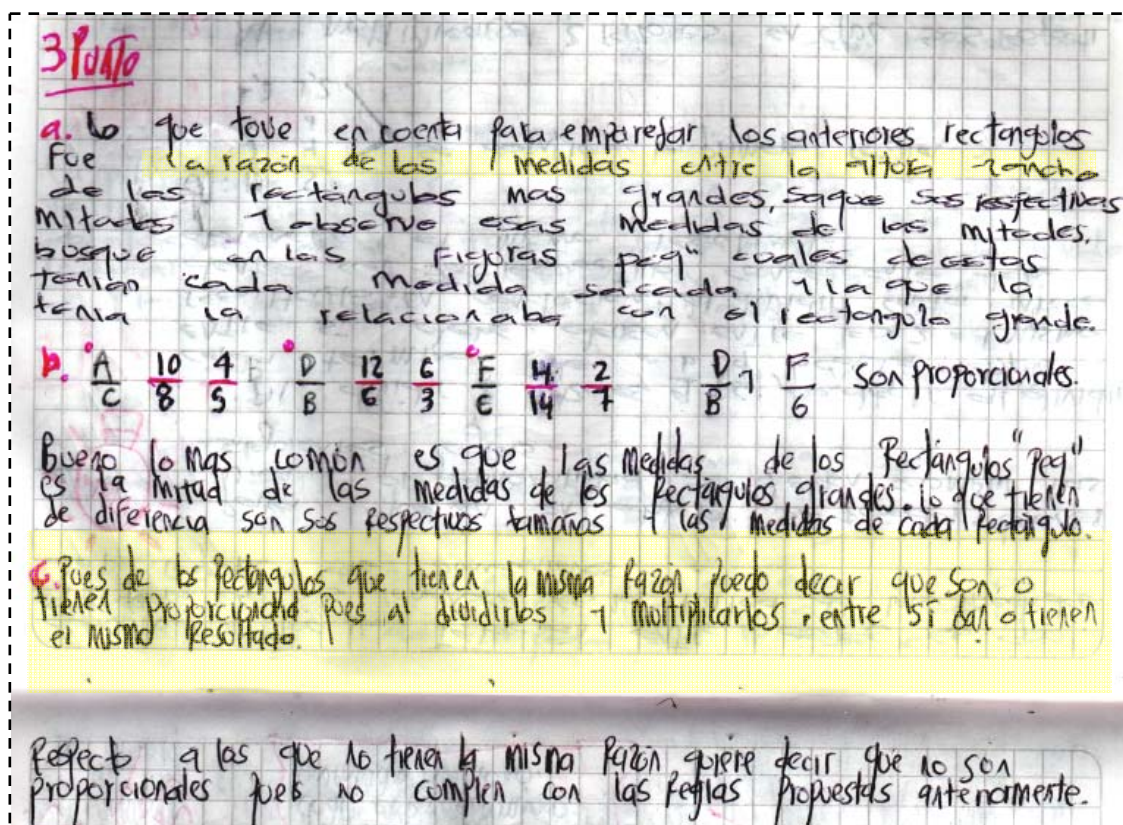 3 Punto
a. lo que tove en coenta para emparejar los anteriores rectangulos
Fue la razón de las medidas entre la altora 1 ancho
de los rectángulos mas grandes, saque sus respectivas
mitades 1 observe esas medidas de las mitades,
bosque en las Figoras peq" cuales de estas
tenian cada medida sacada 1 la que la
tenia la relacionaba con el rectangulo grande.
b. A/C 10/8 4/5 D/B 12/6 6/3 F/E 4/14 2/7 D/B 1 F/6 son proporcionales.
Bueno lo mas común es que las medidas de los Rectángulos "peq"
es la mitad de las medidas de los Rectángulos grandes. lo que tienen
de diferencia son sus respectivos tamaños 1 las medidas de cada Rectángulo.
c. Pues de los Rectangulos que tienen la misma Razón puedo decir que son o
tienen proporcionalid pues al dividirlos 1 multiplicarlos, entre sí dan o tienen
el mismo Resultado.
Respecto a los que no tienen la misma Razón quiere decir que no son
proporcionales pues no complen con las Reglas propuestas anteriormente.